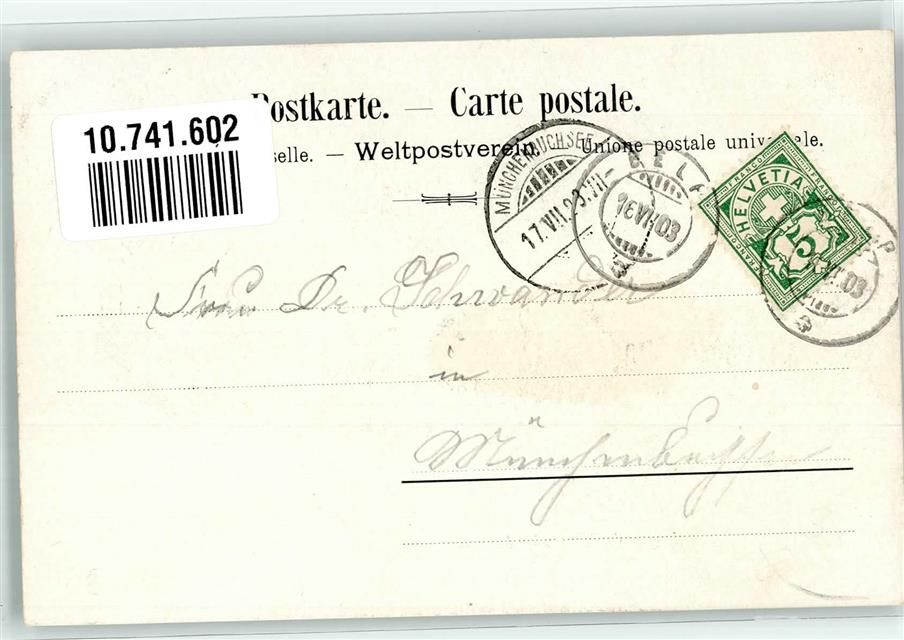 Postkarte. — Carte postale.
10.741.602
selle. — Weltpostverein. Unione postale universale.
MÜNCHENBUCHSEE
17.VII.03.VII-
BELP
16 VII 03
FRANCO
HELVETIA
5
Frau Dr. Schwander
in
Münchenbuchsee